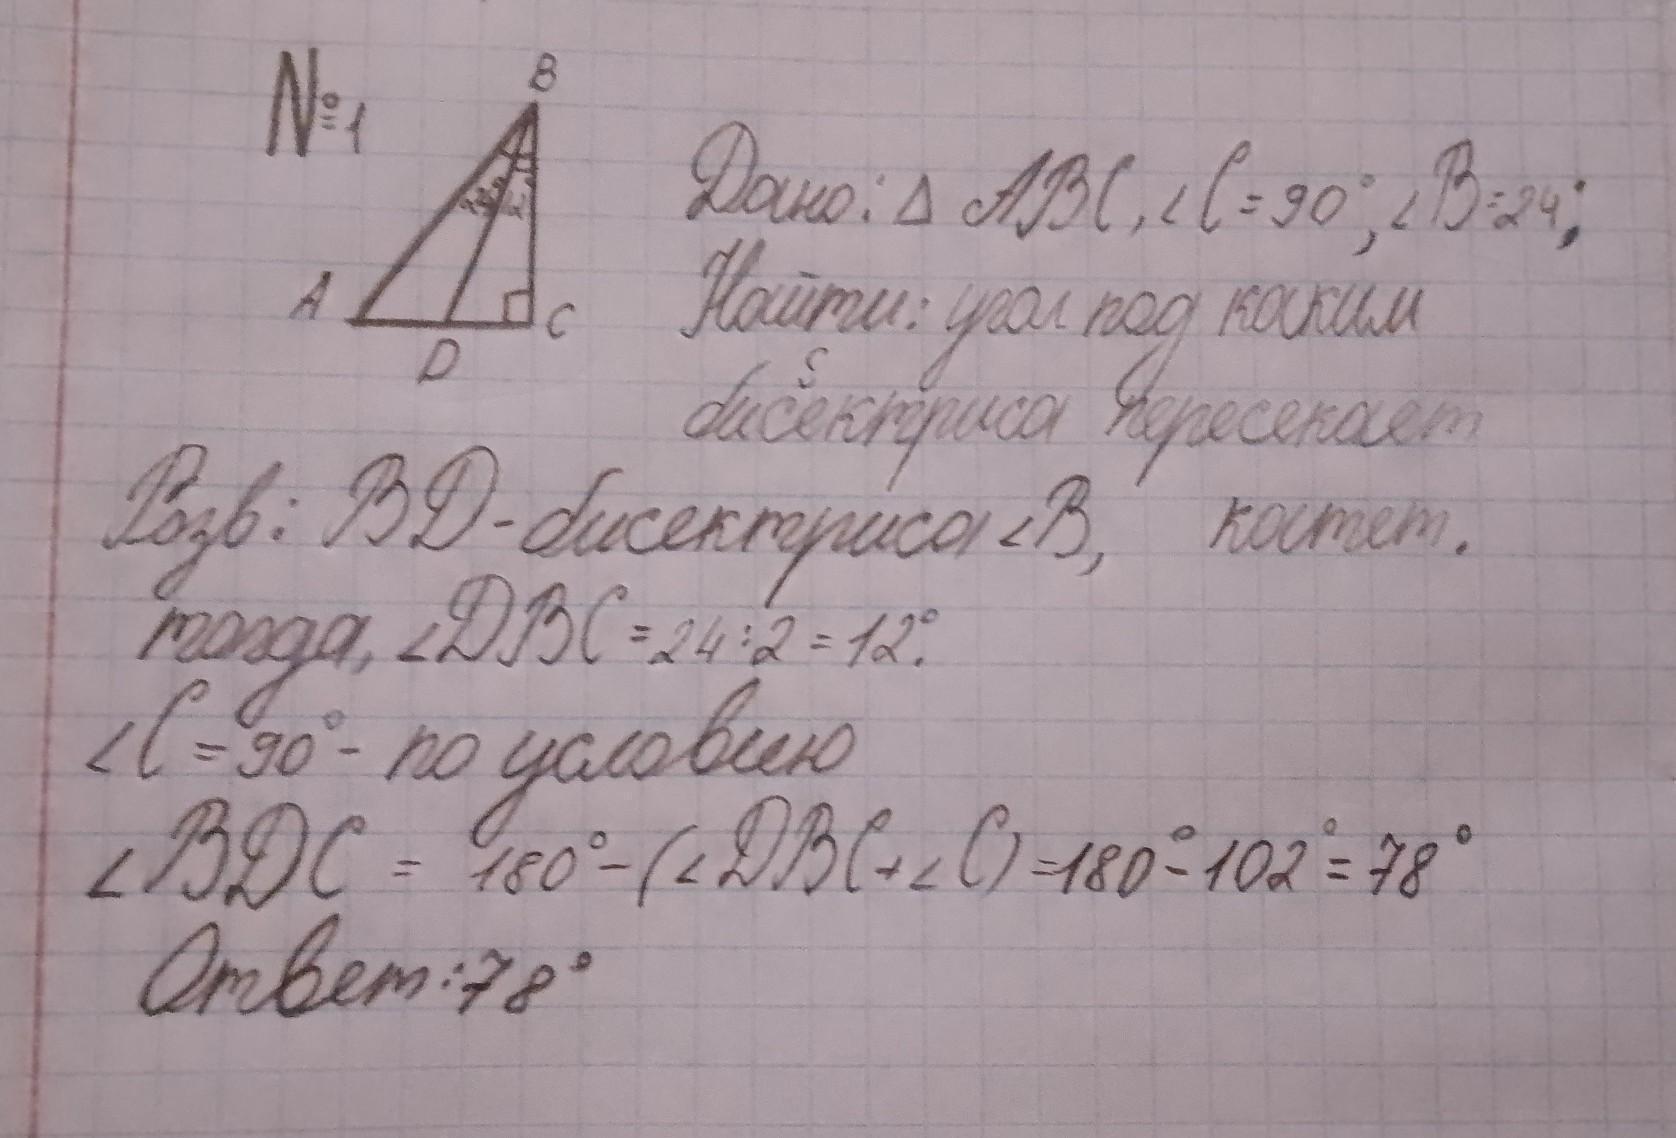 №1
B
Дано: △ ABC, ∠C=90°, ∠B=24°;
A
C
D
Найти: угол под каким
бисектриса пересекает
катет.
Розв: BD-бисектриса ∠B,
тогда, ∠DBC=24:2=12°.
∠C=90°- по условию
∠BDC = 180°-(∠DBC+∠C)=180°-102°=78°
Ответ:78°